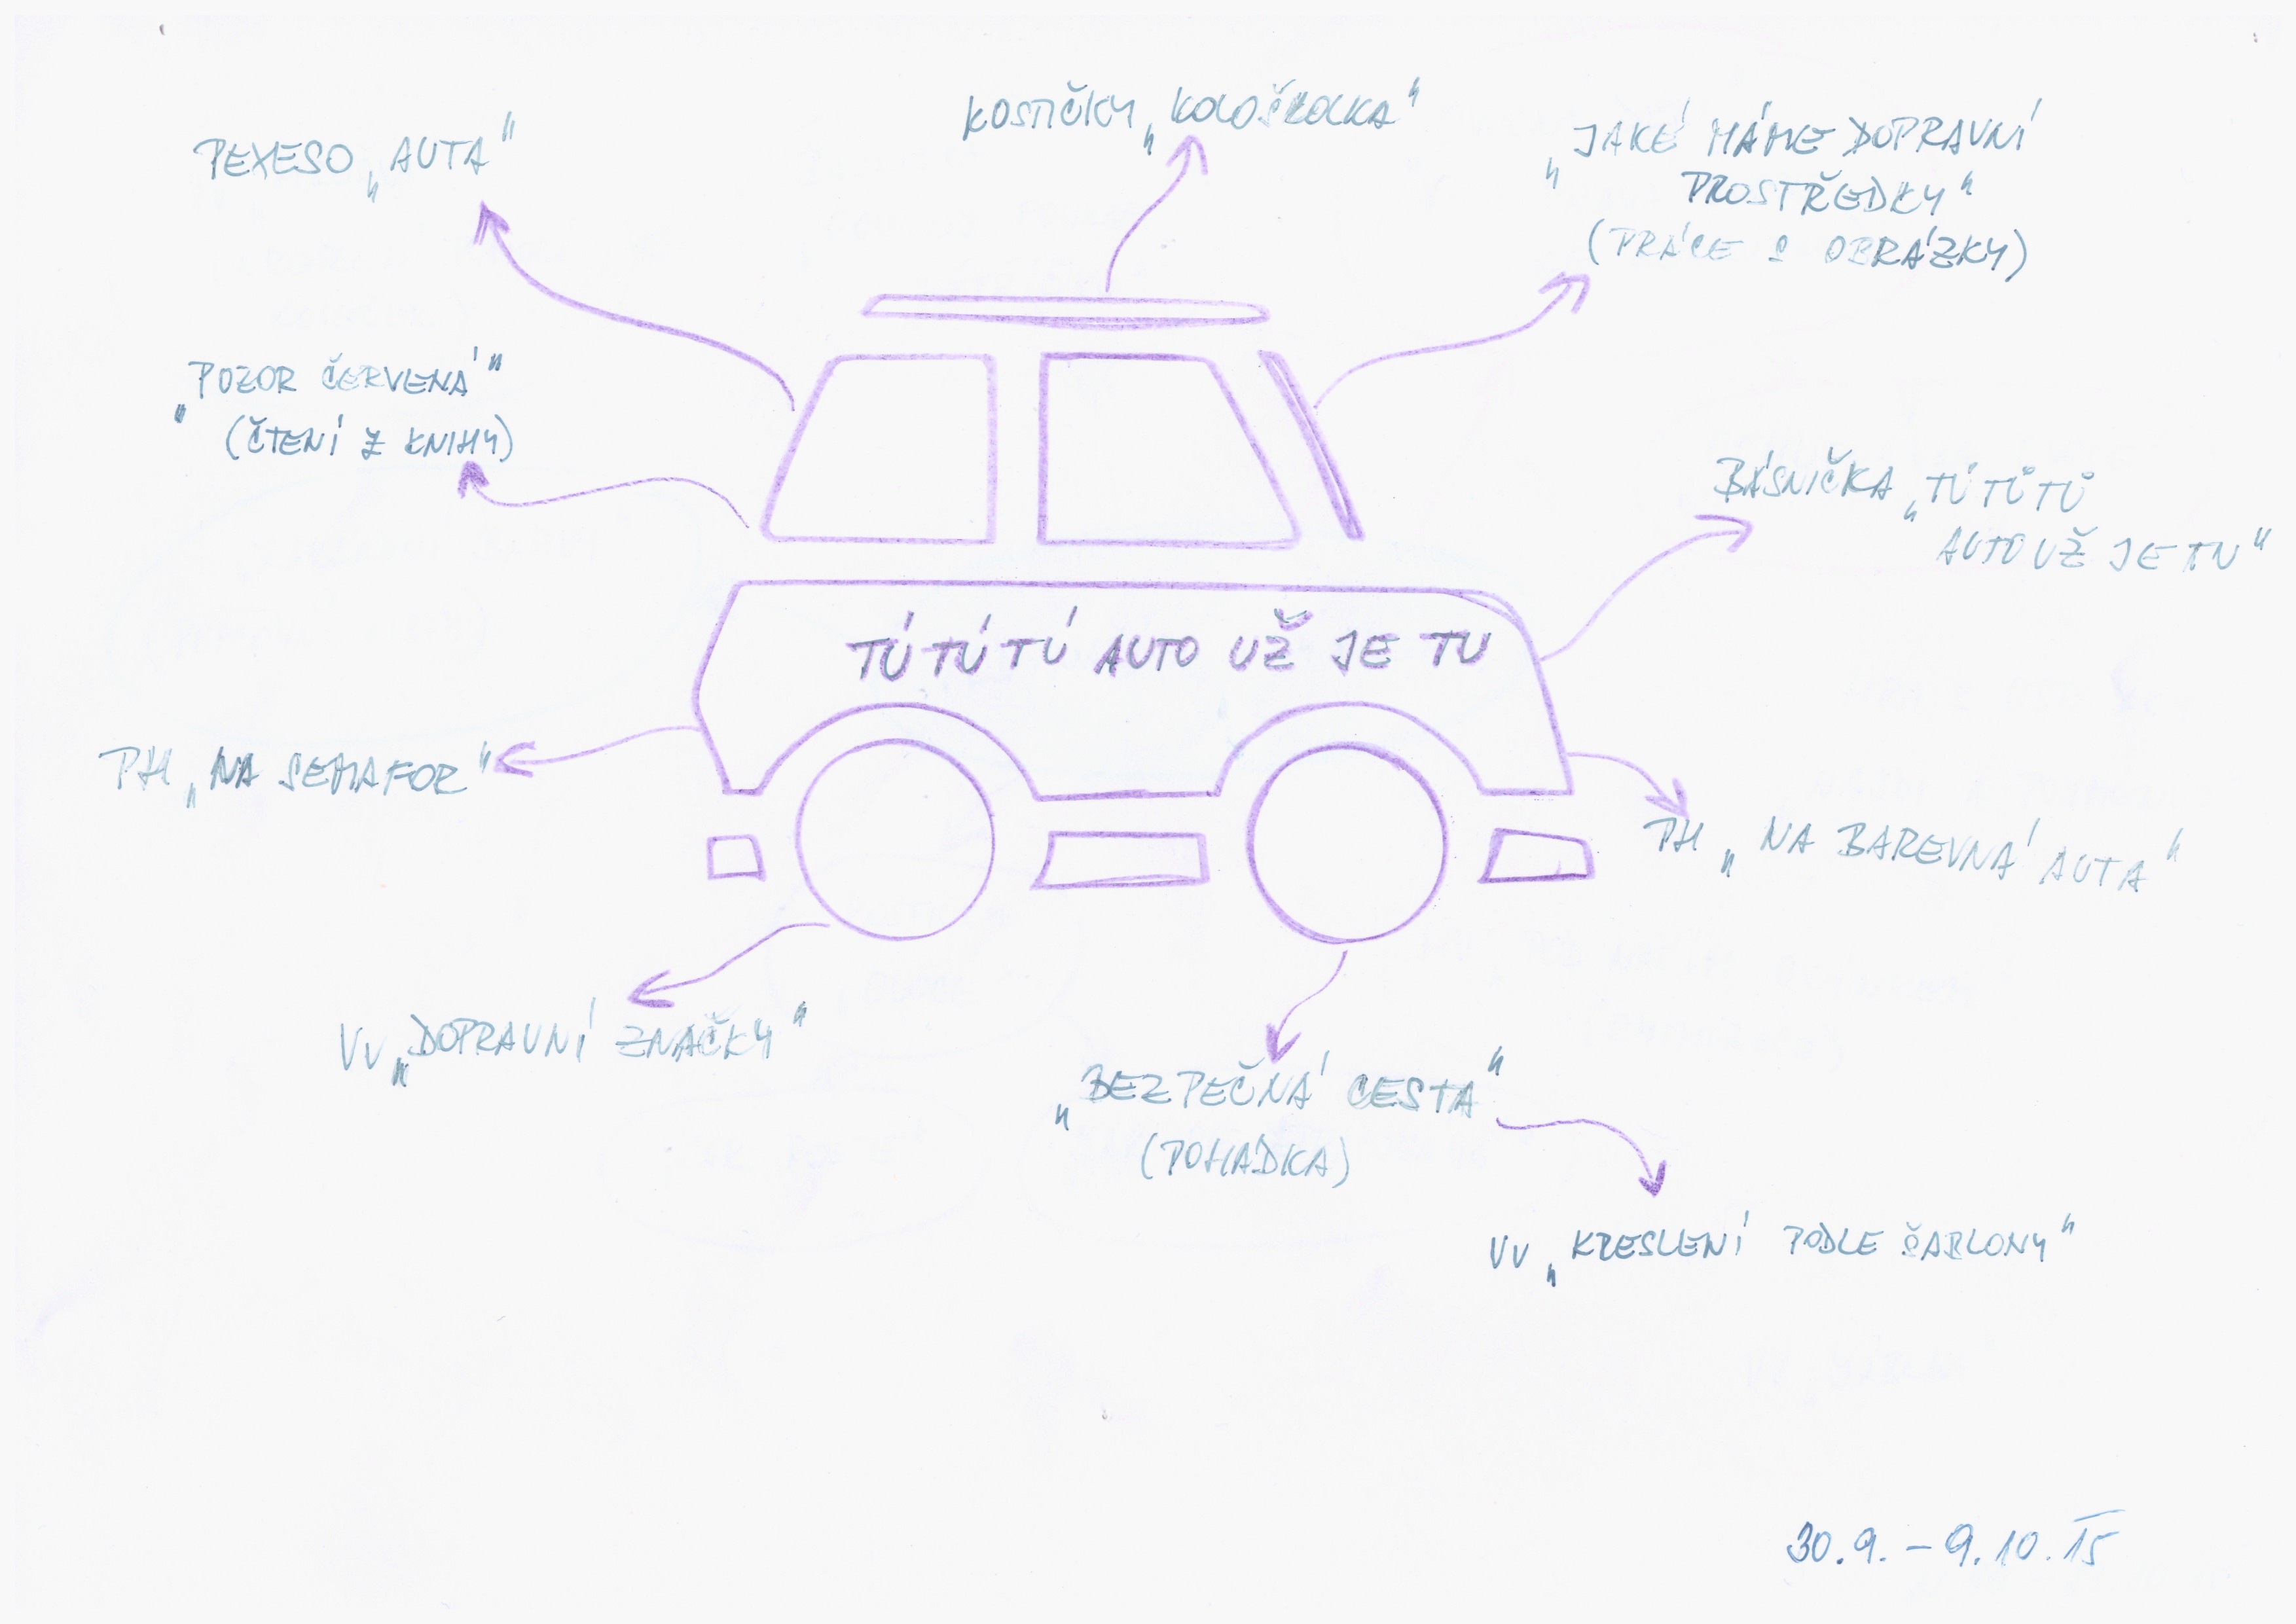 KOSTIČKY „KOLOŠKOLKA"
PEXESO „AUTA"
„JAKÉ MÁME DOPRAVNÍ
PROSTŘEDKY"
(PRÁCE S OBRÁZKY)
„POZOR ČERVENÁ"
(ČTENÍ Z KNIHY)
BÁSNIČKA „TŮ TŮ TŮ
AUTO UŽ JE TU"
TÚ TÚ TÚ AUTO UŽ JE TU
PH „NA SEMAFOR"
PH „NA BAREVNÁ AUTA"
VV „DOPRAVNÍ ZNAČKY"
„BEZPEČNÁ CESTA"
(POHÁDKA)
VV „KRESLENÍ PODLE ŠABLONY"
30.9. – 9.10.15